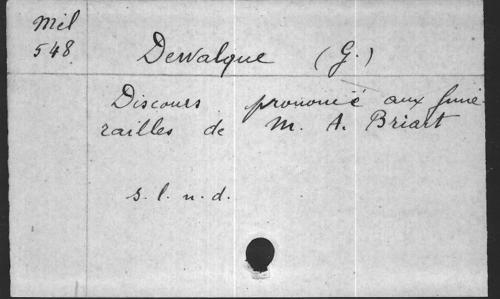 Mil
548
Dewalque (G.)
Discours prononcé aux funé-
railles de M. A. Briart
s. l. n. d.